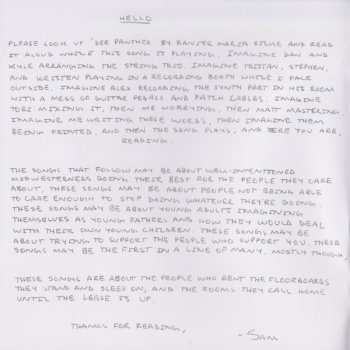 HELLO
PLEASE LOOK UP 'DER PANTHER' BY RAINER MARIA RILKE AND READ
IT ALOUD WHILE THIS SONG IS PLAYING. IMAGINE DAN AND
KYLE ARRANGING THE STRING TRIO. IMAGINE TRISTAN, STEPHEN,
AND KRISTEN PLAYING IN A RECORDING BOOTH WHILE I PACE
OUTSIDE. IMAGINE ALEX RECORDING THE SYNTH PART IN HIS ROOM
WITH A MESS OF GUITAR PEDALS AND PATCH CABLES. IMAGINE
TORI MIXING IT, THEN ME WORRYING, THEN MATT MASTERING.
IMAGINE ME WRITING THESE WORDS, THEN IMAGINE THEM
BEING PRINTED, AND THEN THE SONG PLAYS, AND HERE YOU ARE,
READING.
THE SONGS THAT FOLLOW MAY BE ABOUT WELL-INTENTIONED
MIDWESTERNERS DOING THEIR BEST FOR THE PEOPLE THEY CARE
ABOUT, THESE SONGS MAY BE ABOUT PEOPLE NOT BEING ABLE
TO CARE ENOUGH TO STOP DOING WHATEVER THEY'RE DOING.
THESE SONGS MAY BE ABOUT YOUNG ADULTS IMAGINING
THEMSELVES AS YOUNG FATHERS AND HOW THEY WOULD DEAL
WITH THEIR OWN YOUNG CHILDREN. THESE SONGS MAY BE
ABOUT TRYING TO SUPPORT THE PEOPLE WHO SUPPORT YOU. THESE
SONGS MAY BE THE FIRST IN A LINE OF MANY. MOSTLY THOUGH,
THESE SONGS ARE ABOUT THE PEOPLE WHO RENT THE FLOORBOARDS
THEY STAND AND SLEEP ON, AND THE ROOMS THEY CALL HOME
UNTIL THE LEASE IS UP.
THANKS FOR READING,
- SAM